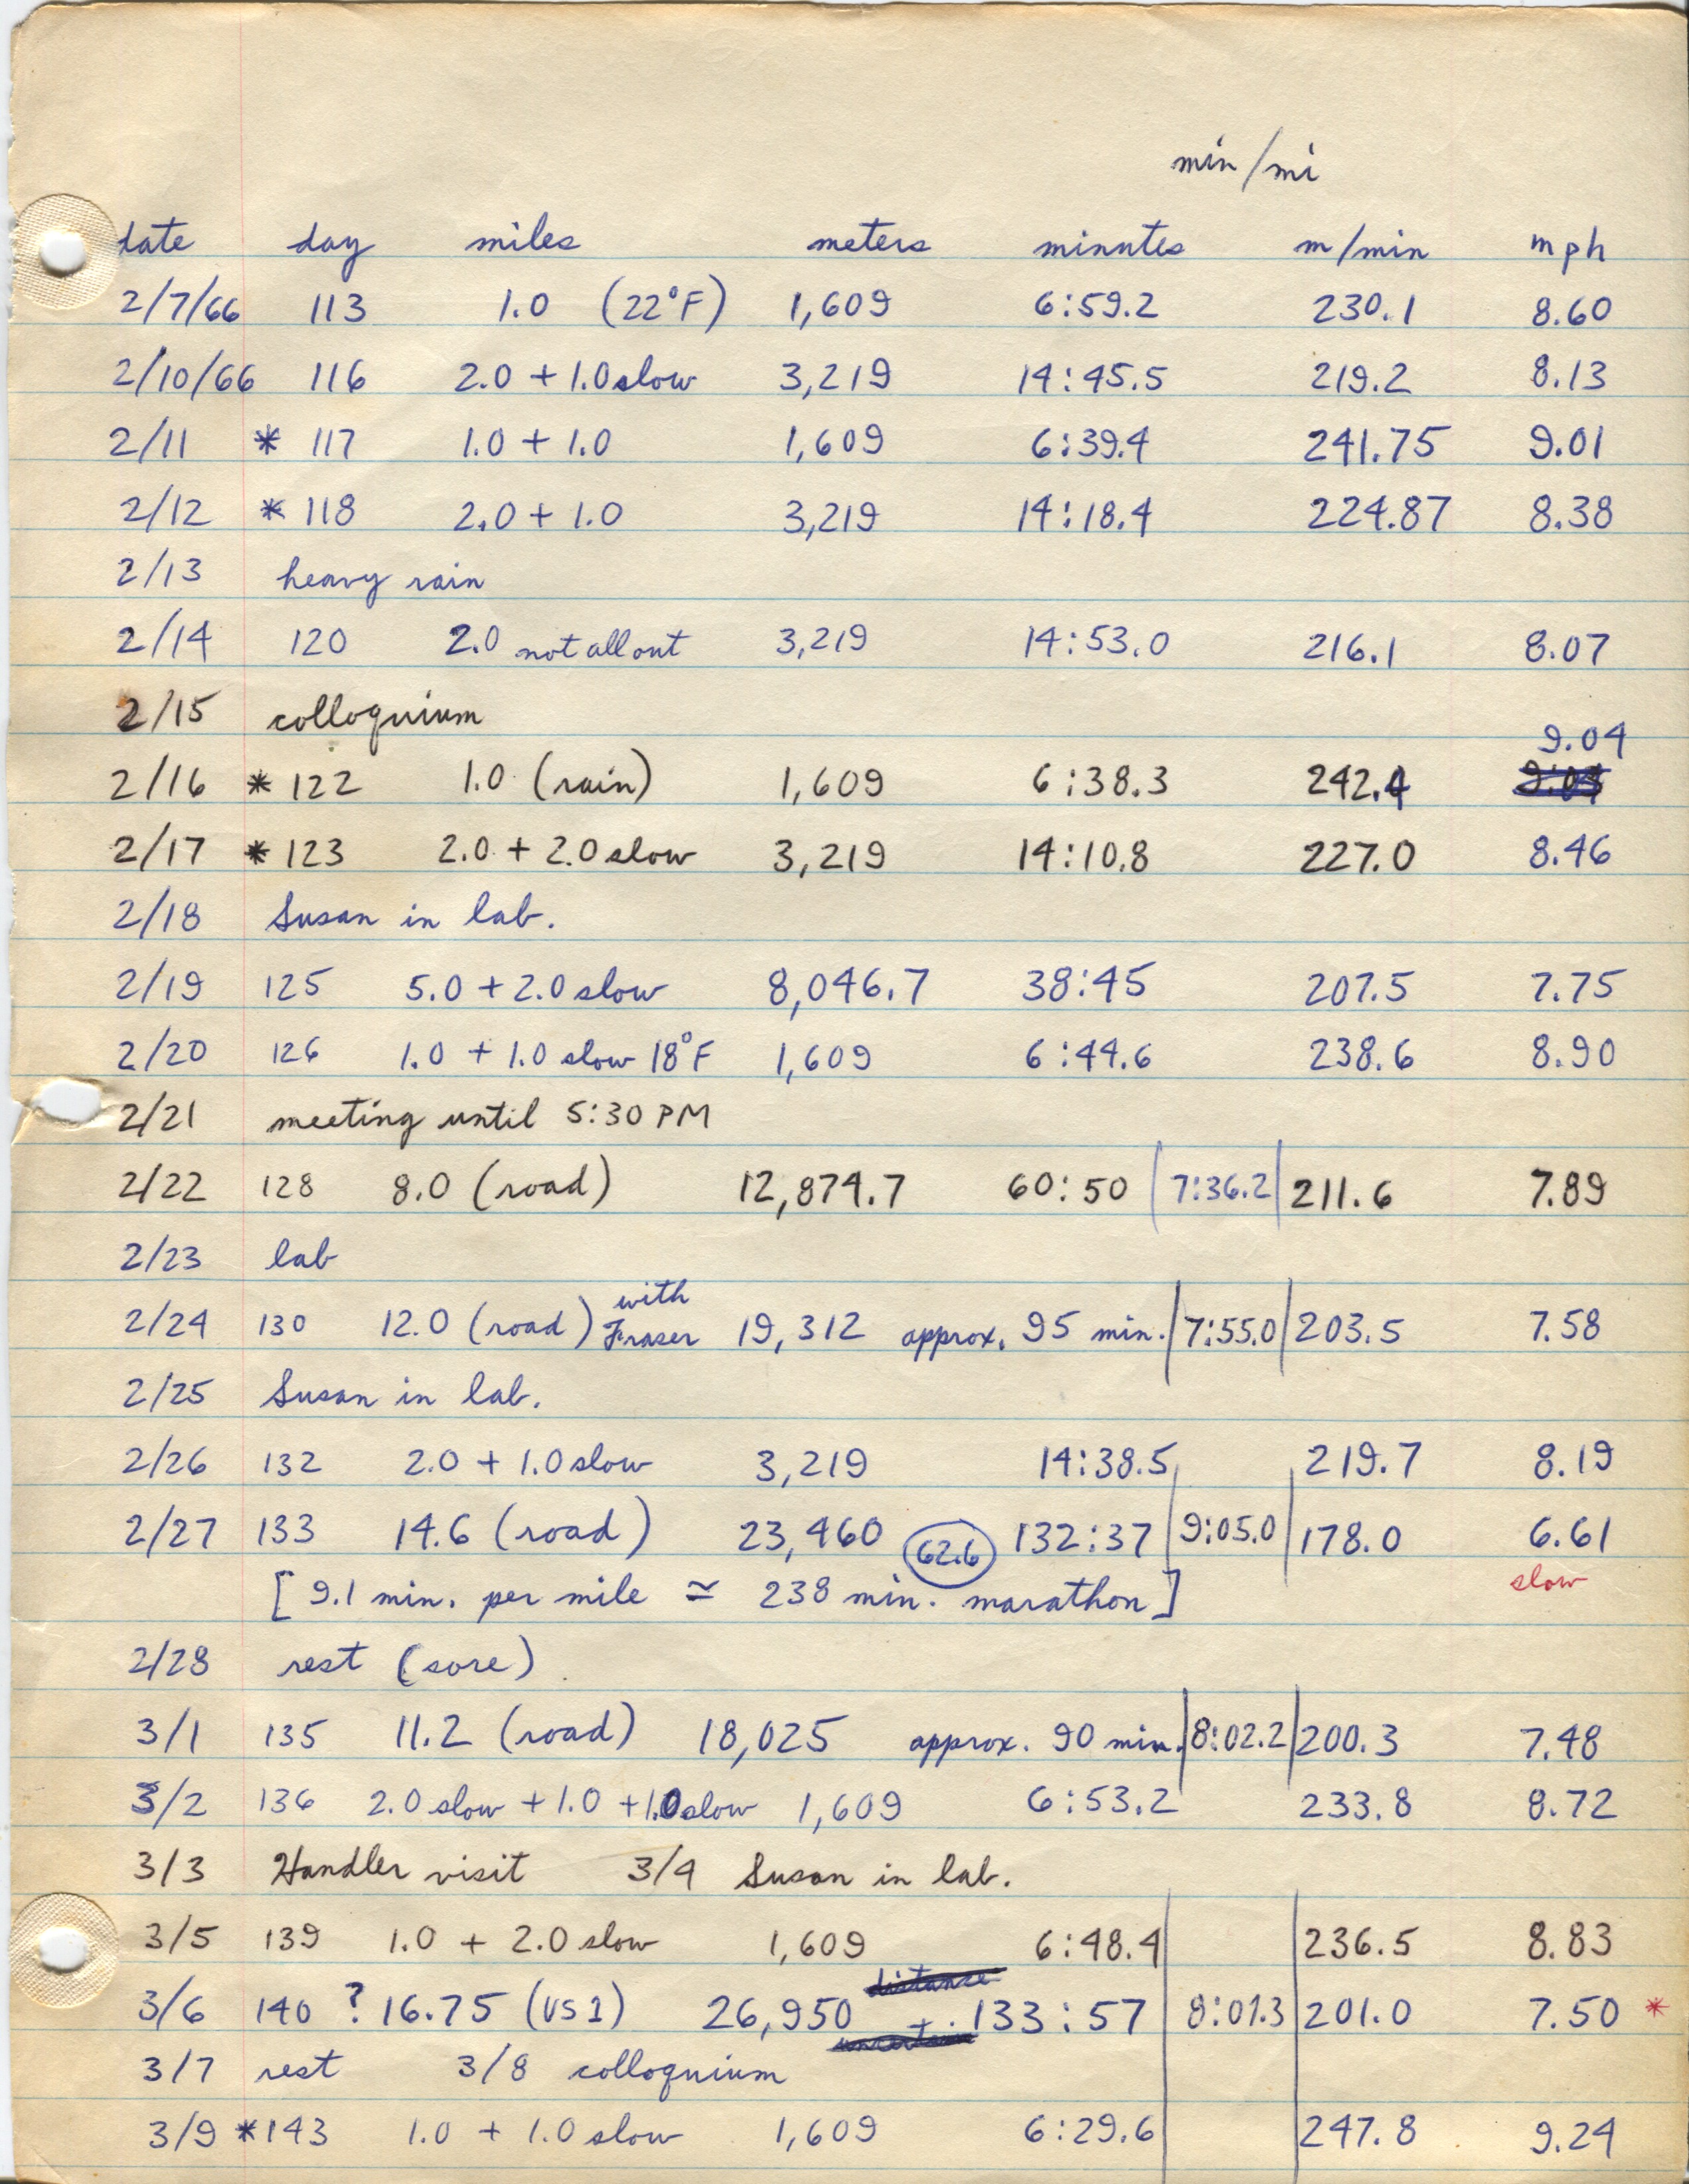 min/mi
date day miles meters minutes m/min mph
2/7/66 113 1.0 (22°F) 1,609 6:59.2 230.1 8.60
2/10/66 116 2.0 + 1.0 slow 3,219 14:45.5 219.2 8.13
2/11 * 117 1.0 + 1.0 1,609 6:39.4 241.75 9.01
2/12 * 118 2.0 + 1.0 3,219 14:18.4 224.87 8.38
2/13 heavy rain
2/14 120 2.0 not all out 3,219 14:53.0 216.1 8.07
2/15 colloquium
9.04
2/16 * 122 1.0 (rain) 1,609 6:38.3 242.4
2/17 * 123 2.0 + 2.0 slow 3,219 14:10.8 227.0 8.46
2/18 Susan in lab.
2/19 125 5.0 + 2.0 slow 8,046.7 38:45 207.5 7.75
2/20 126 1.0 + 1.0 slow 18°F 1,609 6:44.6 238.6 8.90
2/21 meeting until 5:30 PM
2/22 128 8.0 (road) 12,874.7 60:50 7:36.2 211.6 7.89
2/23 lab
2/24 130 12.0 (road) with Fraser 19,312 approx. 95 min. 7:55.0 203.5 7.58
2/25 Susan in lab.
2/26 132 2.0 + 1.0 slow 3,219 14:38.5 219.7 8.19
2/27 133 14.6 (road) 23,460 62.6 132:37 9:05.0 178.0 6.61
[9.1 min. per mile ≃ 238 min. marathon] slow
2/28 rest (sore)
3/1 135 11.2 (road) 18,025 approx. 90 min. 8:02.2 200.3 7.48
3/2 136 2.0 slow + 1.0 + 1.0 slow 1,609 6:53.2 233.8 8.72
3/3 Handler visit 3/4 Susan in lab.
3/5 139 1.0 + 2.0 slow 1,609 6:48.4 236.5 8.83
distance
3/6 140 ? 16.75 (US 1) 26,950 133:57 8:01.3 201.0 7.50 *
uncertain
3/7 rest 3/8 colloquium
3/9 * 143 1.0 + 1.0 slow 1,609 6:29.6 247.8 9.24